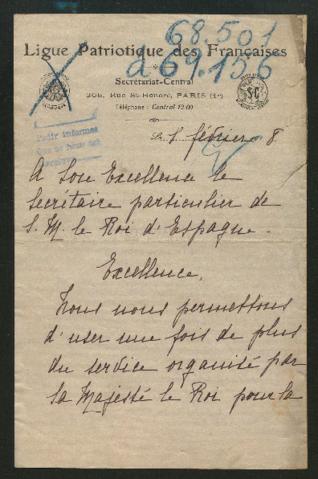 68.501
a 69.156
Ligue Patriotique des Françaises
Secrétariat-Central
368, Rue St-Honoré, PARIS (1er)
Téléphone : Central 12.00
février 8
A Son Excellence le
Secrétaire particulier de
S. M. le Roi d'Espagne.
Excellence,
Nous nous permettons
d'user une fois de plus
du service organisé par
Sa Majesté le Roi pour la